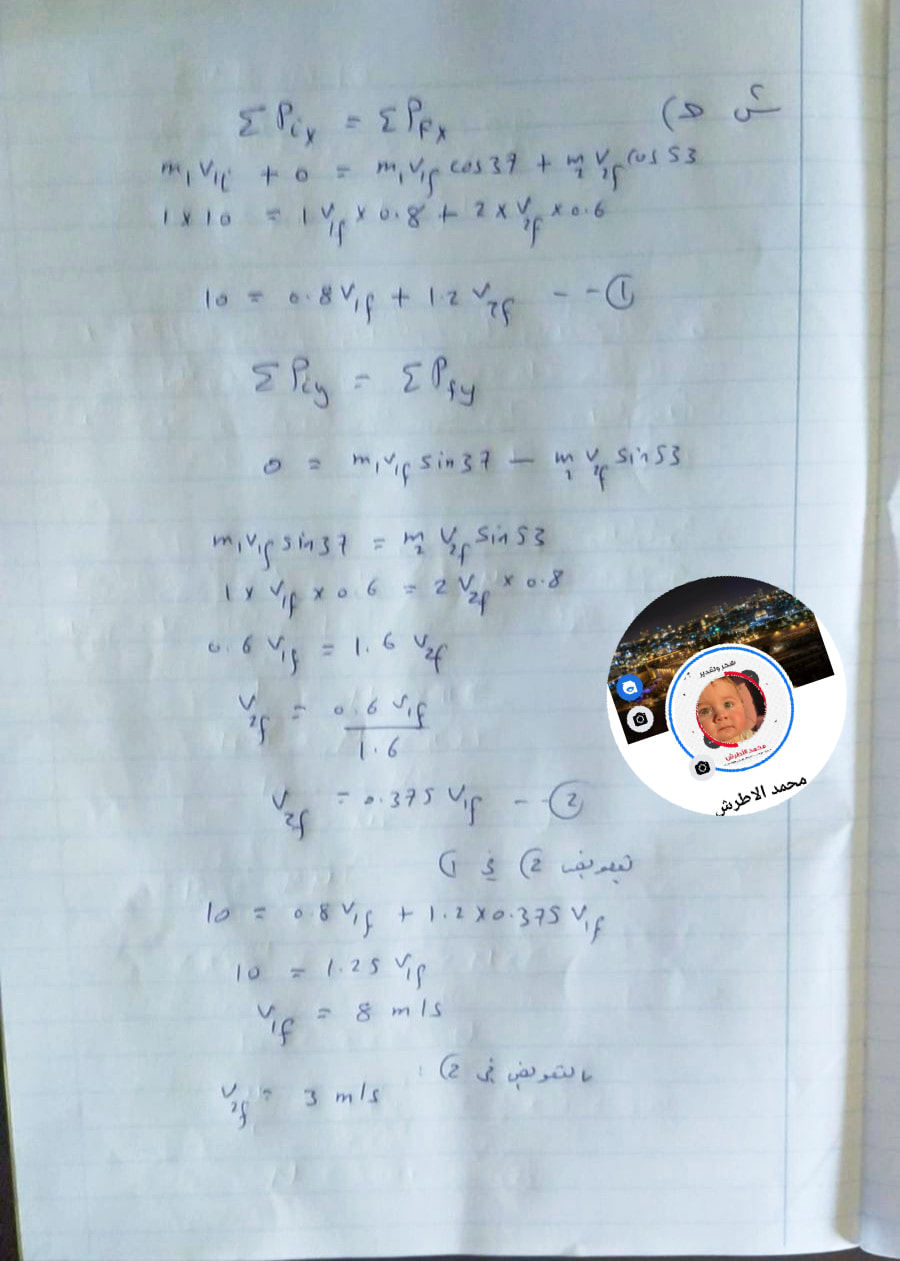 س ٥)
Σ Pix = Σ Pfx
m₁ v₁i + 0 = m₁ v₁f cos 37 + m₂ v₂f cos 53
1 × 10 = 1 v₁f × 0.8 + 2 × v₂f × 0.6
10 = 0.8 v₁f + 1.2 v₂f - - ①
Σ Piy = Σ Pfy
0 = m₁ v₁f sin 37 − m₂ v₂f sin 53
m₁ v₁f sin 37 = m₂ v₂f sin 53
1 × v₁f × 0.6 = 2 v₂f × 0.8
0.6 v₁f = 1.6 v₂f
v₂f = 0.6 v₁f
1.6
v₂f = 0.375 v₁f - - ②
تعويض ② في ①
10 = 0.8 v₁f + 1.2 × 0.375 v₁f
10 = 1.25 v₁f
v₁f = 8 m/s
بالتعويض في ② :
v₂f = 3 m/s
محمد الاطرش
محمد الاطرش